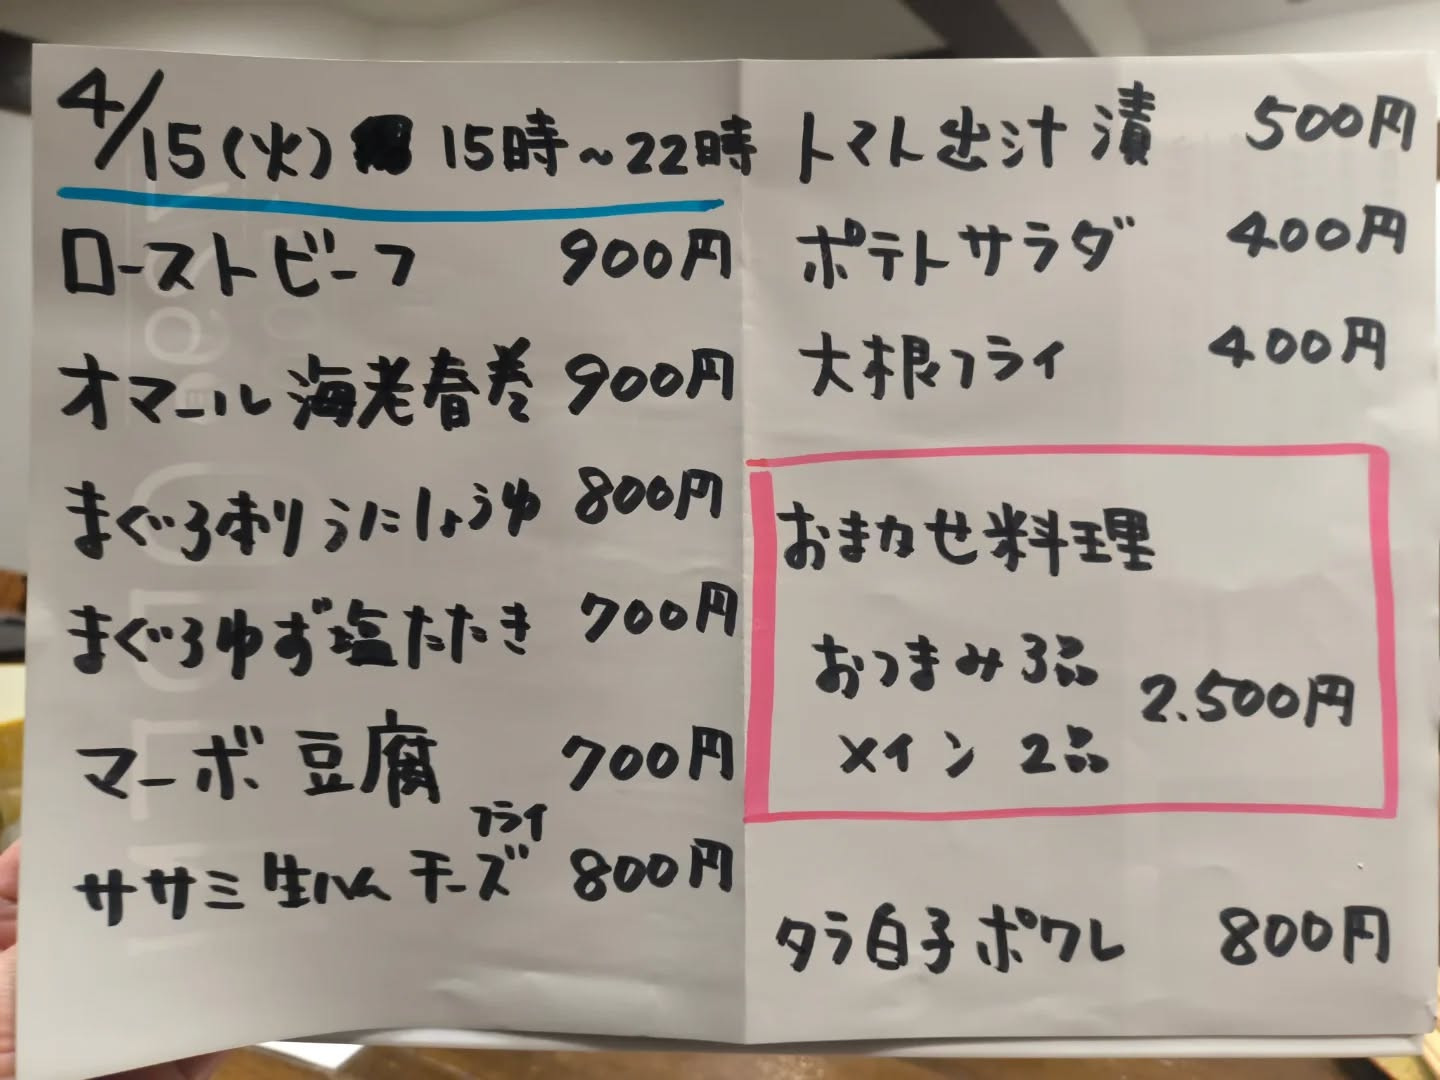 4/15(火) 15時~22時
ローストビーフ 900円
オマール海老春巻 900円
まぐろ刺りうにしょうゆ 800円
まぐろゆず塩たたき 700円
マーボ豆腐 700円
フライ
ササミ生ハムチーズ 800円
トマト出汁漬 500円
ポテトサラダ 400円
大根フライ 400円
おまかせ料理
おつまみ3品
2.500円
メイン 2品
タラ白子ポワレ 800円